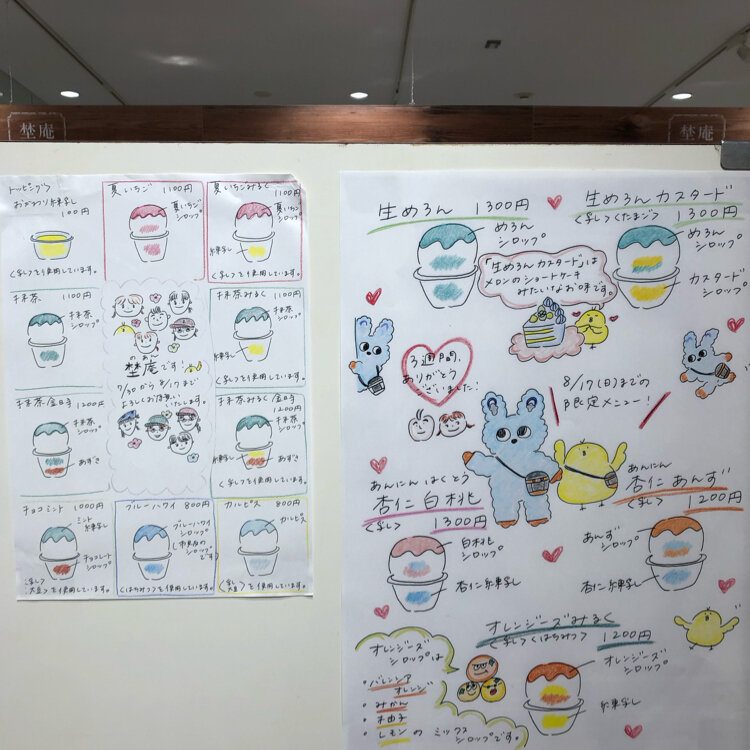 埜庵
埜庵
トッピング
おかわり練乳
100円
<乳>を使用しています。
夏いちご 1100円
夏いちご
シロップ
夏いちごみるく
1100円
夏いちご
シロップ
練乳
<乳>を使用しています。
抹茶 1100円
抹茶
シロップ
のあん
埜庵です!
7/30から8/17まで
よろしくお願いいたします。
抹茶みるく
1100円
抹茶
シロップ
練乳
<乳>を使用しています。
抹茶金時
1200円
抹茶
シロップ
あずき
抹茶みるく金時
1200円
抹茶
シロップ
練乳
あずき
<乳>を使用しています。
チョコミント 1000円
ミント
練乳
チョコレート
シロップ
<乳>
大豆>を使用しています。
ブルーハワイ 800円
ブルーハワイ
シロップ
<はちみつ>を使用しています。
カルピス 800円
カルピス
<乳
大豆>を使用しています。
生めろん 1300円
めろん
シロップ
生めろんカスタード
<乳><たまご> 1300円
めろん
シロップ
カスタード
シロップ
「生めろんカスタード」は
メロンのショートケーキ
みたいなお味です。
3週間、
ありがとう
ございました!
8/17(日)までの
限定メニュー!
あんにん はくとう
杏仁白桃
<乳> 1300円
白桃
シロップ
杏仁練乳
あんにん
杏仁あんず
<乳> 1200円
あんず
シロップ
杏仁練乳
オレンジーズみるく
<乳><はちみつ> 1200円
オレンジーズ
シロップ
練乳
オレンジーズ
シロップは
・バレンシア
オレンジ
・みかん
・柚子
・レモンのミックス
シロップです。